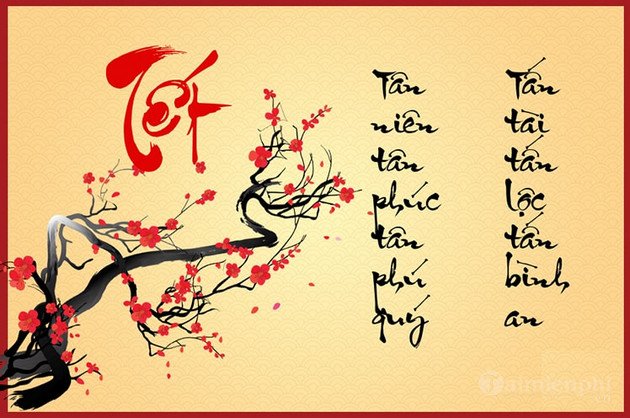 Tết
Tân niên tân phúc tân phú quý
Tấn tài tấn lộc tấn bình an
Taimienphi
.vn